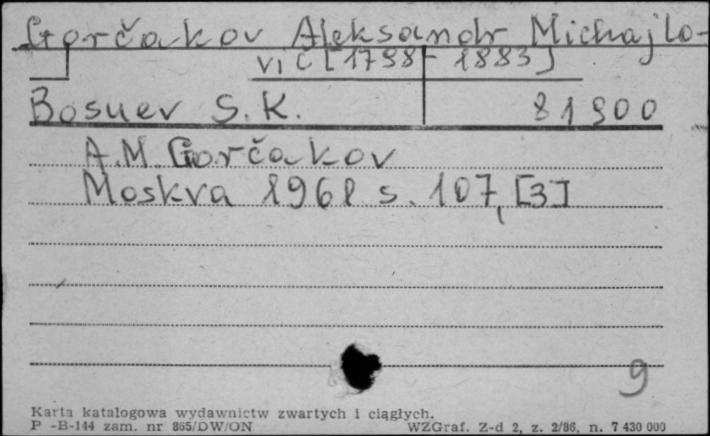 Gorčakov Aleksandr Michajlo-
vič [1798-1883]
Bosuev S.K. 81900
A.M. Gorčakov
Moskva 1961 s. 107, [3]
9
Karta katalogowa wydawnictw zwartych i ciągłych.
P -B-144 zam. nr 865/DW/ON WZGraf. Z-d 2, z. 2/86, n. 7 430 000